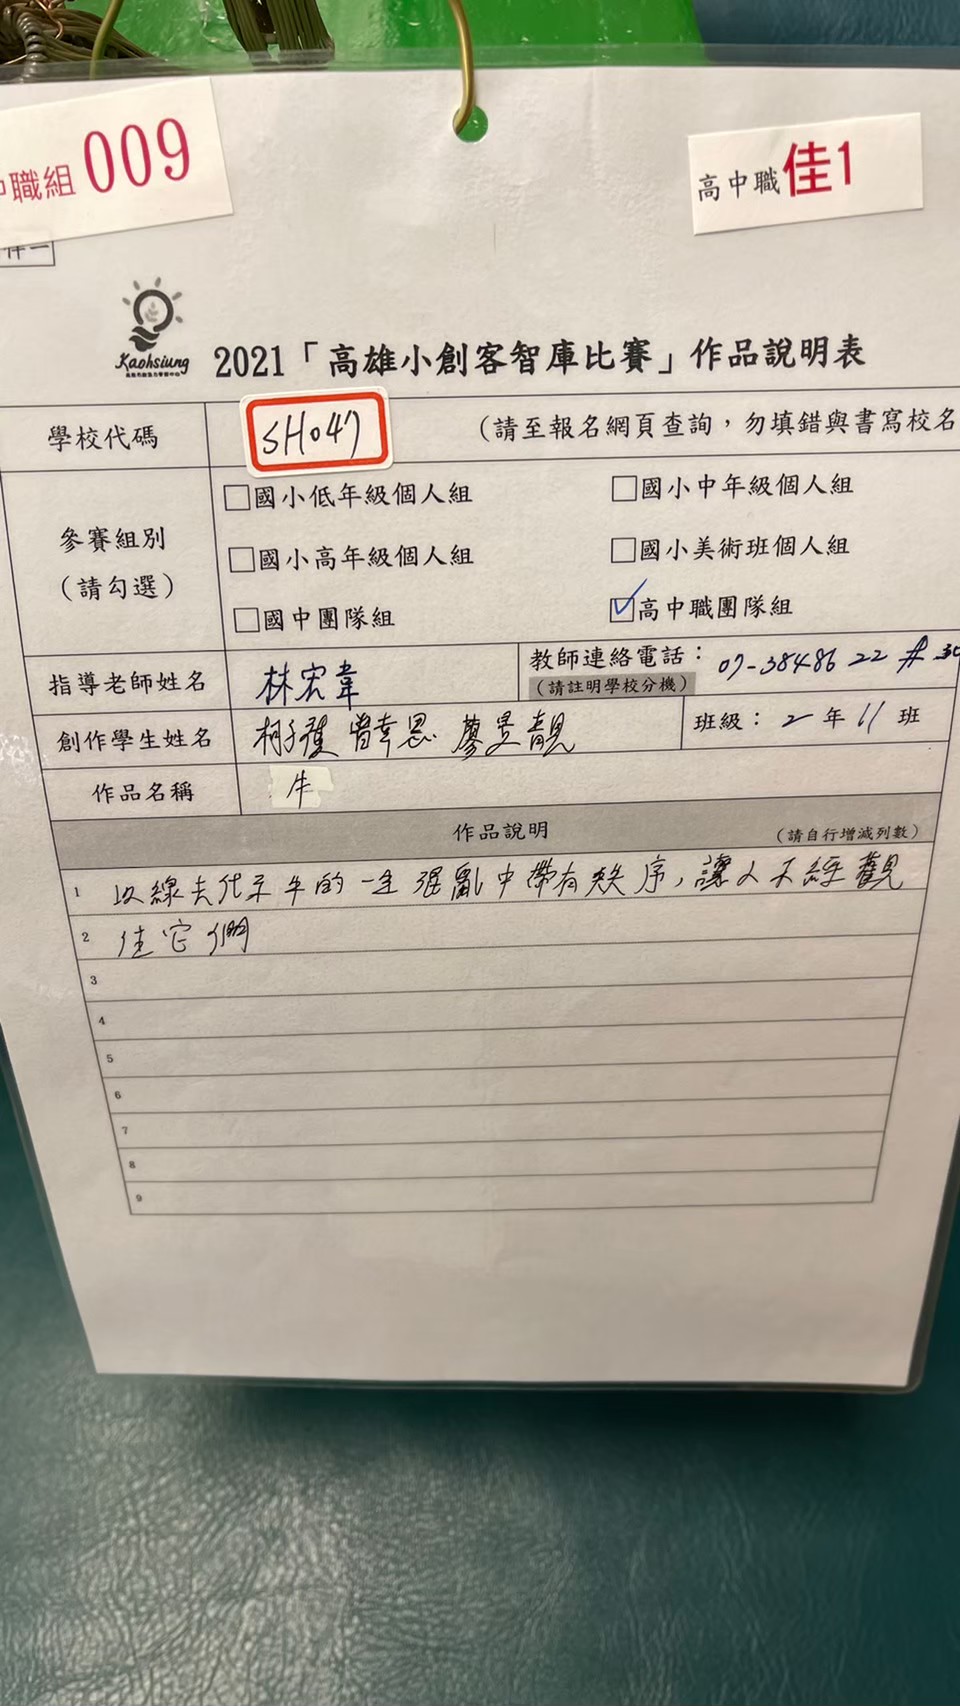 職組 009
高中職 佳1
件一
Kaohsiung
2021「高雄小創客智庫比賽」作品說明表
學校代碼 SH047 （請至報名網頁查詢，勿填錯與書寫校名
參賽組別
（請勾選）
□國小低年級個人組 □國小中年級個人組
□國小高年級個人組 □國小美術班個人組
□國中團隊組 ☑高中職團隊組
指導老師姓名 林宏韋 教師連絡電話： 07-3848622 #30
（請註明學校分機）
創作學生姓名 柯子 曾幸恩 廖昱靚 班級：2年11班
作品名稱 牛
作品說明 （請自行增減列數）
1 以線去代表牛的一生 混亂中帶有秩序，讓人不經觀
2 住它們
3
4
5
6
7
8
9